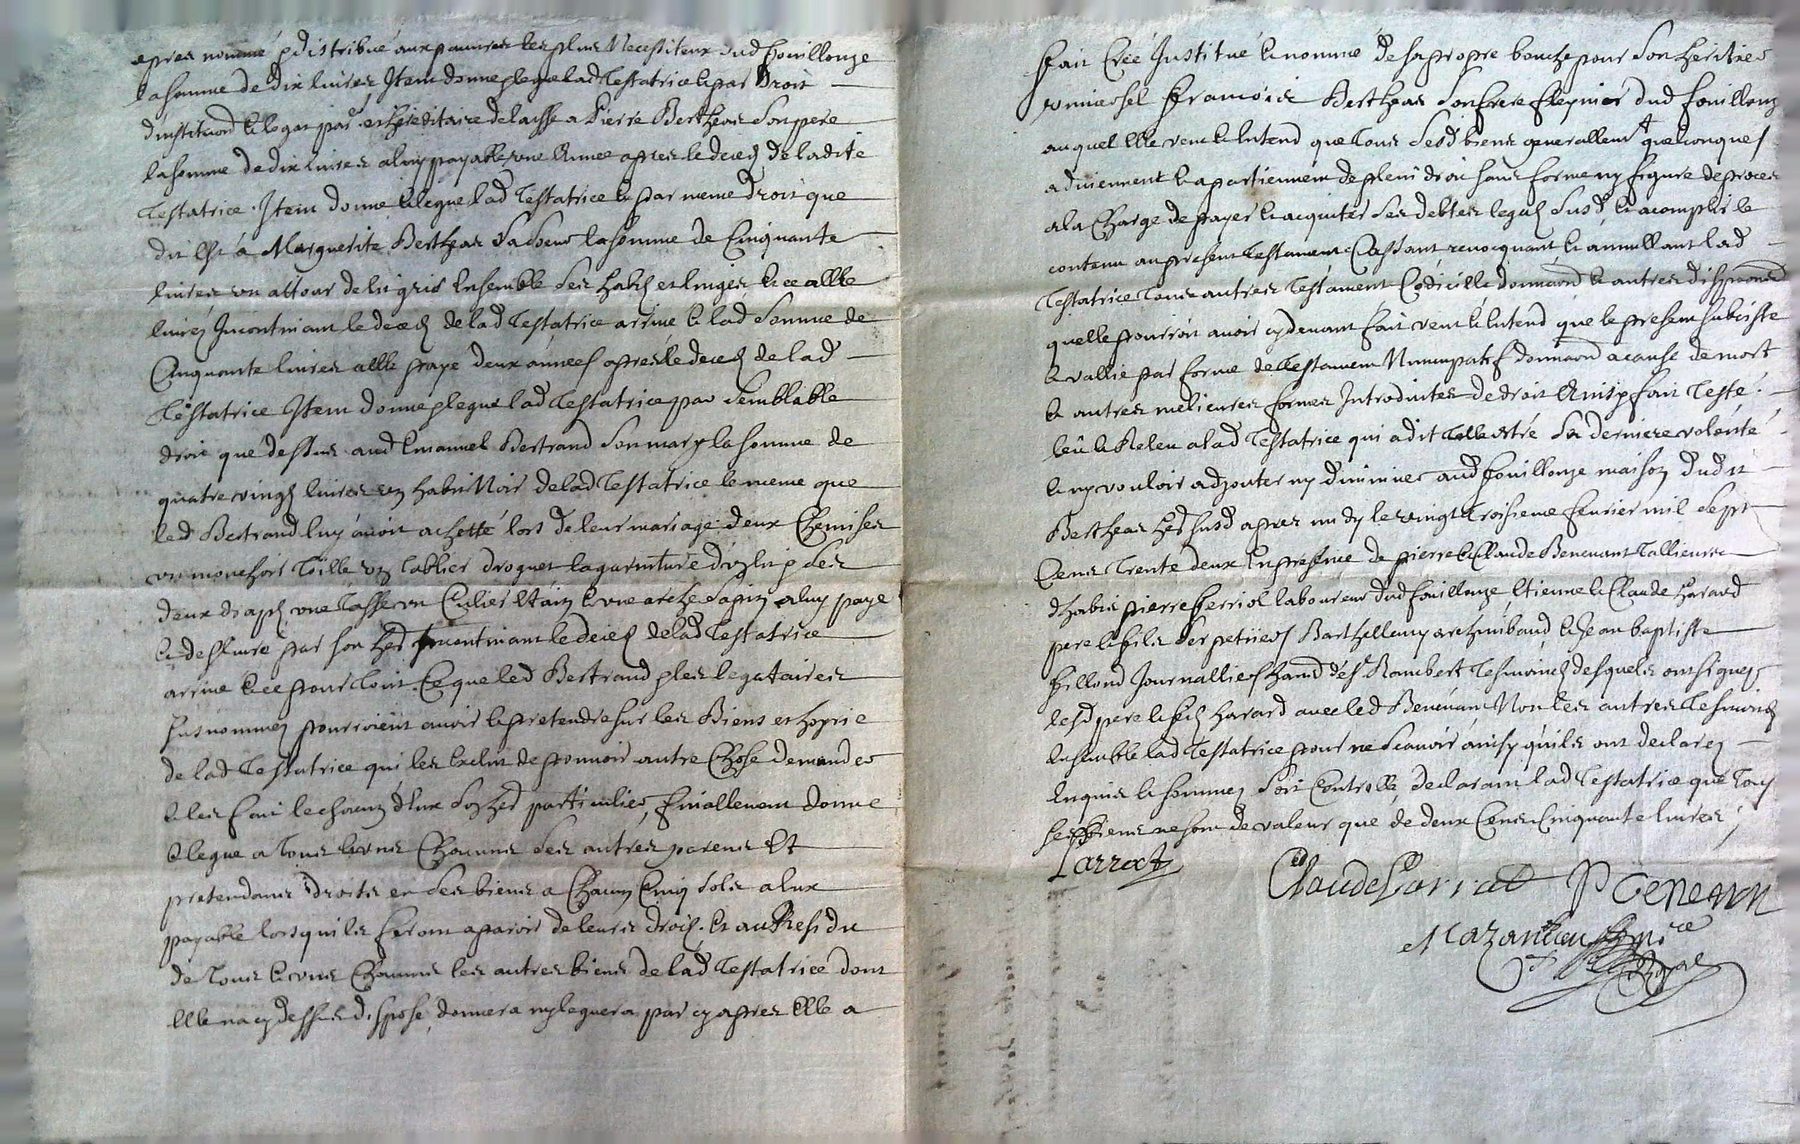 apres nommé & distribué aux pauvres les plus Necessiteux dud fouillouze
la somme de dix livres Item donne & legue lad Testatrice & par Droit
dinstitution & legat par et hereditaire delaisse a Pierre Bertheas son pere
la somme de dix livres a luy payable une Année apres le deced de ladite
Testatrice . Item donne & legue lad Testatrice & par meme droit que
dit Est a Marguerite Bertheas sa soeur la somme de Cinquante
livres un attour de lit gris Ensemble ses habis et linges & ce a elle
livrés Incontinant le deced de lad Testatrice arrive & lad somme de
Cinquante livres a elle paye deux annees apres le deced de lad
Testatrice Item donne & legue lad Testatrice par semblable
droit que dessus aud Emanuel Bertrand son mary la somme de
quatre vingt livres un habit Noir de lad Testatrice le meme que
led Bertrand luy avoit achetté lors de leur mariage deux Chemises
un mouchoir Toille un tablier droguet la garniture d'un lit & ses
deux draps une Tasse un Culier Etain & une arche sapin a luy paye
& delivre par son hed Incontinant le deced de lad Testatrice
arrive & ce pour tout Ce que led Bertrand & les legataires
susnommez pourroient avoir & pretendre sur les Biens et hoyrie
de lad Testatrice qui les Exclut de pouvoir autre Chose demander
& les fait & chacun d'Eux son hed particulier, finallement donne
& legue a tous & uns Chacuns ses autres parens Et
pretendans droits en ses biens a Chacun Cinq sols a Eux
payable lorsquils feront aparoir de leurs droits . Et au Residu
de tous & uns Chacuns les autres biens de lad Testatrice dont
Elle na cy dessus dispose, donnera ny leguera par cy apres Elle a
fait Créé Institué & nomme de sa propre bouche pour son heritier
universel François Bertheas son frere dud fouillouz
auquel Elle veut & Entend que tous sesd biens generallement quelconques
adviennent & apartiennent de plein droit sans forme ny figure de proces
a la Charge de payer & acquiter ses debtes legats susd & acomplir le
contenu au present Testament Cassant revocquant & annullant lad
Testatrice tous autres Testament Codicille donnaon & autres disposition
quelle pourroit avoir cy devant fait veut & Entend que le present subciste
& vallie par forme de Testament Nuncupatif donnaon a cause de mort
& autres melieures formes Introduites de droit Ainsy fait Teste
leû & Releu a lad Testatrice qui a dit Telle estre sa derniere volonté
& ny vouloir adjouter ny diminuer aud fouillouze maison dudit
Bertheas hed susd apres midy le vingt troisieme fevrier mil sept
Cens Trente deux En presence de pierre & Claude Benevant Tallieurs
dhabis pierre ferriol laboureur dud fouillouze, Etienne & Claude Harard
pere & fils serpetiers Barthellemy archimbaud & Jean baptiste
Gillond Journalliers de St Rambert Tesmoins desquels ont signes
lesd pere & fils Harard avec led Benevant Non les autres Tesmoins
Ensemble lad Testatrice pour ne Scavoir ainsy quils ont declarez
Enquis & sommez Soit Controlle, declarant lad Testatrice que tous
ses Biens ne sont de valeur que de deux Cens Cinquante livres
Larrat
Claude Larrat P Benevan
Mazan nre
Royal